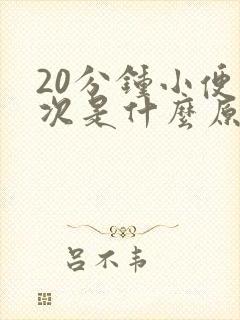 20分鍾小便
次是什麽原
吕不韦